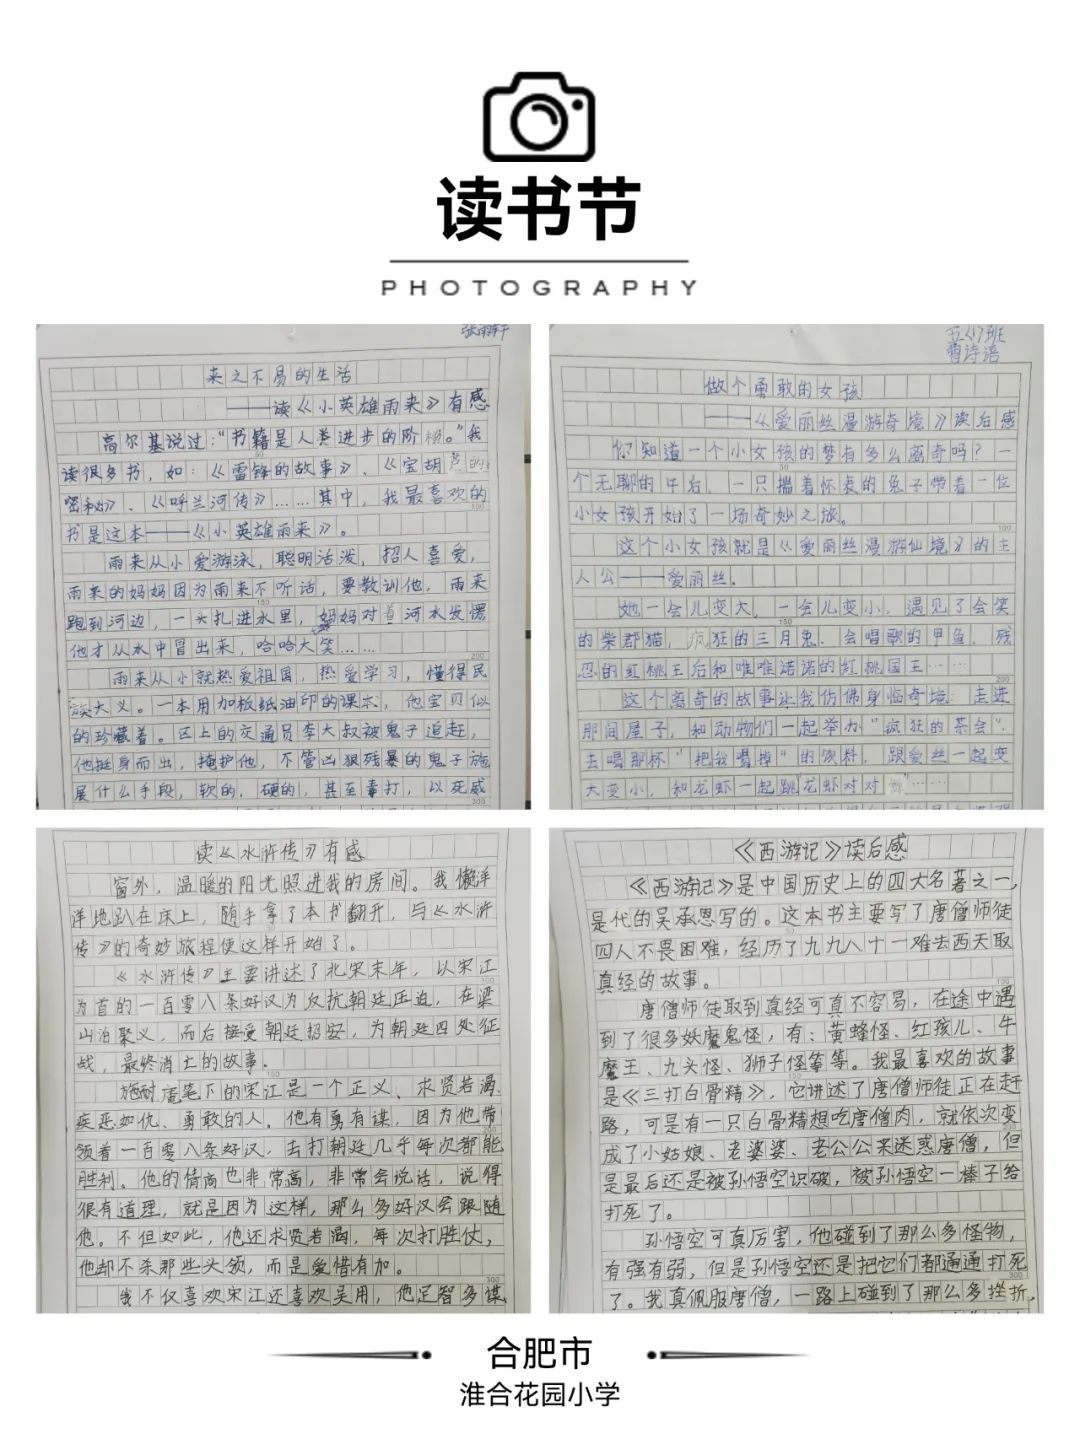 读书节
PHOTOGRAPHY
张雨轩
来之不易的生活
——读《小英雄雨来》有感
高尔基说过：“书籍是人类进步的阶梯。”我
读很多书，如：《雷锋的故事》、《宝葫芦的
密秘》、《呼兰河传》……其中，我最喜欢的
书是这本——《小英雄雨来》。
雨来从小爱游泳，聪明活泼，招人喜爱，
雨来的妈妈因为雨来不听话，要教训他，雨来
跑到河边，一头扎进水里，妈妈对着河水发愣
他才从水中冒出来，哈哈大笑……
雨来从小就热爱祖国，热爱学习，懂得民
族大义。一本用加板纸油印的课本，他宝贝似
的珍藏着。区上的交通员李大叔被鬼子追赶，
他挺身而出，掩护他，不管凶狠残暴的鬼子施
展什么手段，软的，硬的，甚至毒打，以死威
五（1）班
曹诗语
做个勇敢的女孩
——《爱丽丝漫游奇境》读后感
你知道一个小女孩的梦有多么离奇吗？一
个无聊的午后，一只揣着怀表的兔子带着一位
小女孩开始了一场奇妙之旅。
这个小女孩就是《爱丽丝漫游仙境》的主
人公——爱丽丝。
她一会儿变大，一会儿变小，遇见了会笑
的柴郡猫，疯狂的三月兔、会唱歌的甲鱼，残
忍的红桃王后和唯唯诺诺的红桃国王……
这个离奇的故事让我仿佛身临奇境：走进
那间屋子，和动物们一起举办“疯狂的茶会”，
去喝那杯“把我喝掉”的饮料，跟爱丝一起变
大变小，和龙虾一起跳“龙虾对对舞”……
读《水浒传》有感
窗外，温暖的阳光照进我的房间。我懒洋
洋地趴在床上，随手拿了本书翻开，与《水浒
传》的奇妙旅程便这样开始了。
《水浒传》主要讲述了北宋末年，以宋江
为首的一百零八条好汉为反抗朝廷压迫，在梁
山泊聚义，而后接受朝廷招安，为朝廷四处征
战，最终消亡的故事。
施耐庵笔下的宋江是一个正义、求贤若渴、
疾恶如仇、勇敢的人。他有勇有谋，因为他带
领着一百零八条好汉，去打朝廷几乎每次都能
胜利。他的情商也非常高，非常会说话，说得
很有道理，就是因为这样，那么多好汉会跟随
他。不但如此，他还求贤若渴，每次打胜仗，
他却不杀那些头领，而是爱惜有加。
我不仅喜欢宋江还喜欢吴用，他足智多谋
《西游记》读后感
《西游记》是中国历史上的四大名著之一，
是代的吴承恩写的。这本书主要写了唐僧师徒
四人不畏困难，经历了九九八十一难去西天取
真经的故事。
唐僧师徒取到真经可真不容易，在途中遇
到了很多妖魔鬼怪，有：黄蜂怪、红孩儿、牛
魔王、九头怪、狮子怪等等。我最喜欢的故事
是《三打白骨精》，它讲述了唐僧师徒正在赶
路，可是有一只白骨精想吃唐僧肉，就依次变
成了小姑娘、老婆婆、老公公来迷惑唐僧，但
是最后还是被孙悟空识破，被孙悟空一棒子给
打死了。
孙悟空可真厉害，他碰到了那么多怪物，
有强有弱，但是孙悟空还是把它们都通通打死
了。我真佩服唐僧，一路上碰到了那么多挫折，
合肥市
淮合花园小学